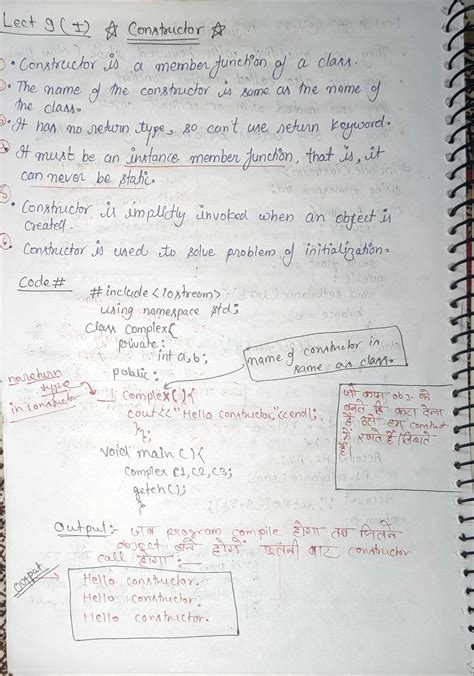 Lect 9 (I) ☆ Constructor ☆
• Constructor is a member function of a class.
• The name of the constructor is same as the name of
the class.
• It has no return type, so can't use return keyword.
• It must be an instance member function, that is, it
can never be static.
• Constructor is implictly invoked when an object is
created.
• Constructor is used to solve problem of initialization.
Code #
#include <iostream>
using namespace std;
class complex{
private:
int a,b;
public:
name of constructor in
same as class.
no return
type
in constructor
complex(){
cout<<"Hello constructor,"<<endl;
};
जो काम obj. के
बनते ही करा देना
है, उसे हम construct
में रखते हैं लिखते
हैं।
void main(){
complex c1,c2,c3;
getch();
}
Output:- जब program compile होगा तब जितने
object बने होंगे उतनी बार constructor
call होगा:-
output
Hello constructor.
Hello constructor.
Hello constructor.